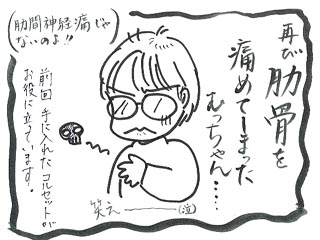 再び肋骨を
痛めてしまった
むっちゃん…
(肋間神経痛じゃ
ないのよ!!)
前回 手に入れた コルセットが
お役に立っています。
笑え――(泣)